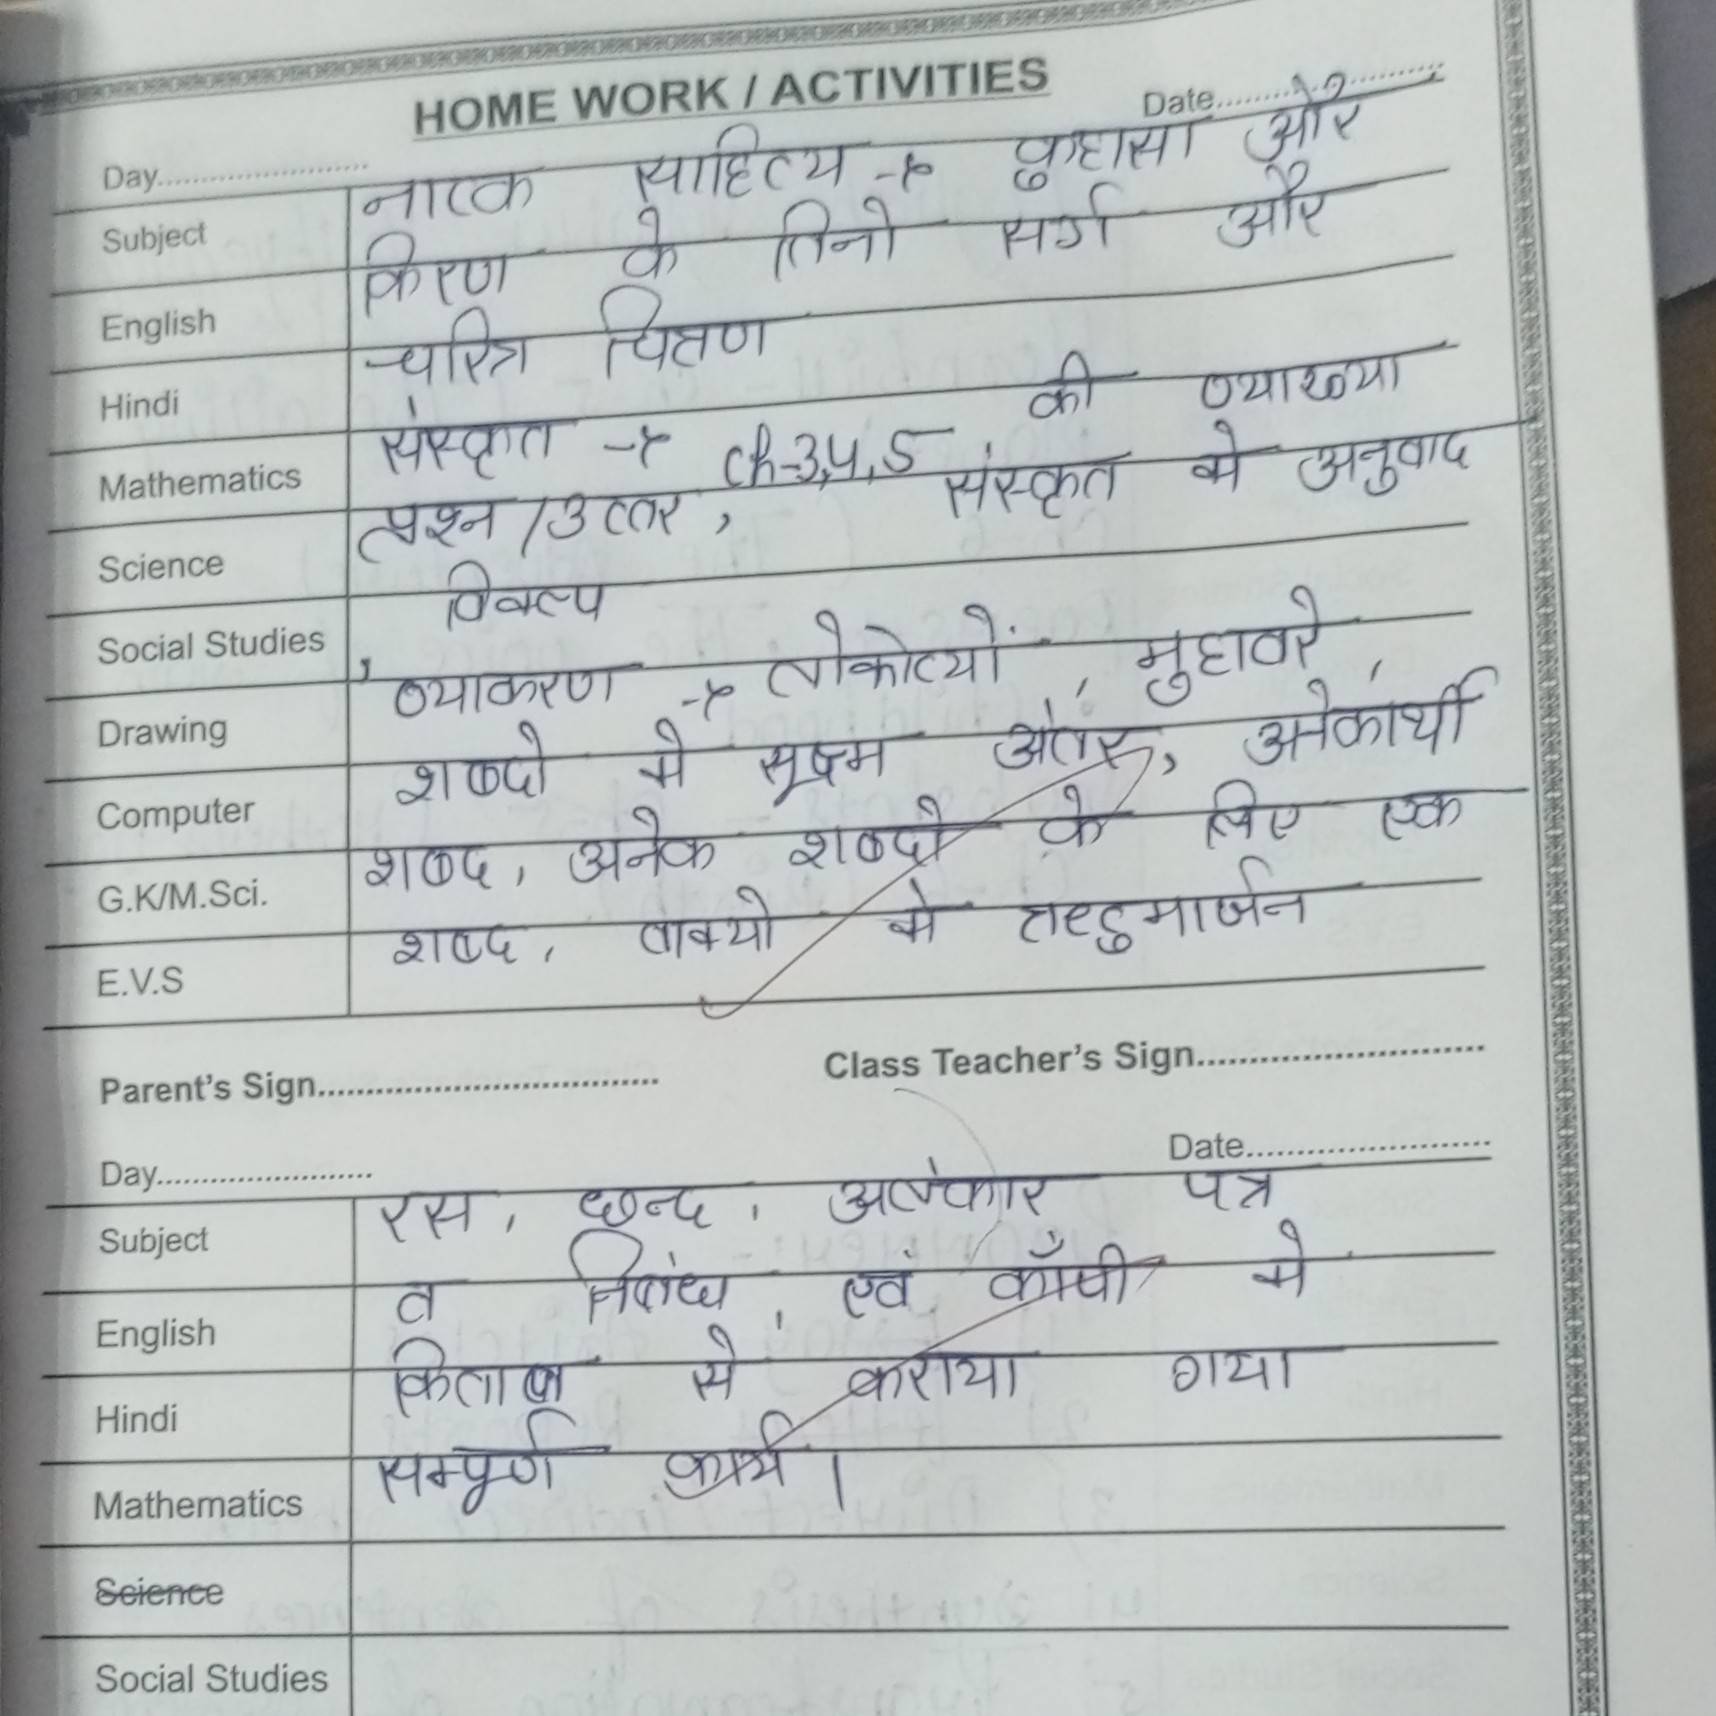 HOME WORK / ACTIVITIES
Day.......................... Date..........................
Subject नाटक साहित्य → कुहासा और
English किरण के तिनो सर्ग और
Hindi चरित्र चित्रण
Mathematics संस्कृत → Ch-3,4,5 की व्याख्या
Science प्रश्न /उत्तर, संस्कृत मे अनुवाद
Social Studies विकल्प
Drawing व्याकरण → लोकोत्यों, मुहावरे,
Computer शब्दो मे सूक्ष्म अंतर, अनेकार्थी
G.K/M.Sci. शब्द, अनेक शब्दो के लिए एक
E.V.S शब्द, वाक्यो मे त्रुटिमार्जन
Parent's Sign.......................... Class Teacher's Sign..........................
Day.......................... Date..........................
Subject रस, छन्द, अलंकार पत्र
English व निबंध, एवं कॉपी मे
Hindi किताब से कराया गया
Mathematics सम्पूर्ण कार्य।
Science
Social Studies